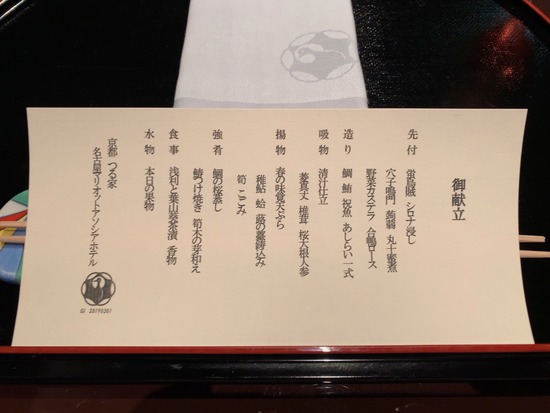 御献立
先付 蛍烏賊 シロナ浸し
穴子鳴門 蒟蒻 丸十蜜煮
野菜カステラ 合鴨ロース
造り 鯛 鮪 祝魚 あしらい一式
吸物 清汁仕立
菱真丈 椎茸 桜大根人参
揚物 春の味覚天ぷら
稚鮎 蛤 蕗の薹挟込み
筍 こごみ
強肴 鯛の桜蒸し
鰆つけ焼き 筍木の芽和え
食事 浅利と葉山葵茶漬 香物
水物 本日の果物
京都 つる家
名古屋マリオットアソシアホテル
GI 20190301